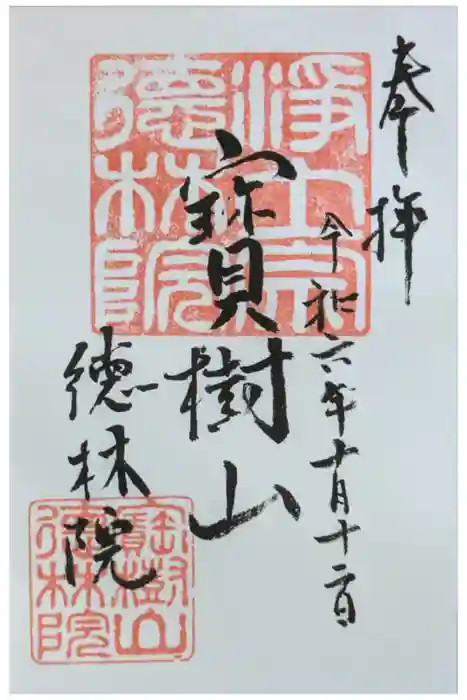 奉拝
令和六年十月十二日
寳樹山
德林院
浄土宗
德林院
寳樹山
德林院